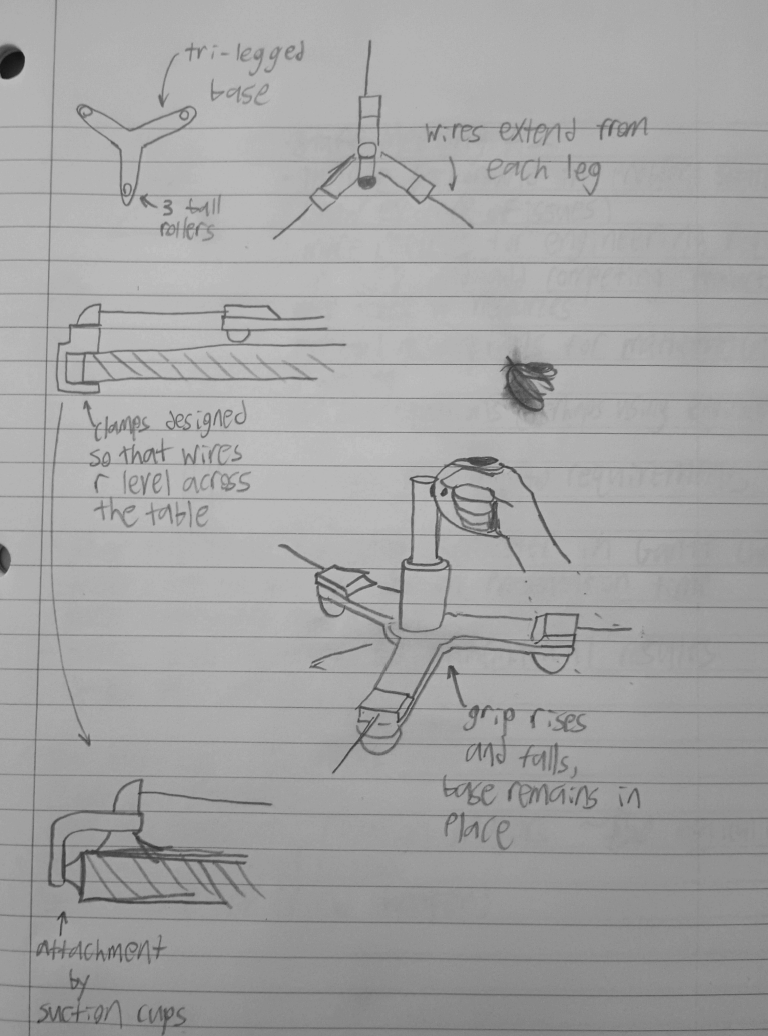 tri-legged
base
3 ball
rollers
wires extend from
each leg
clamps designed
so that wires
r level across
the table
grip rises
and falls,
base remains in
place
attachment
by
suction cups